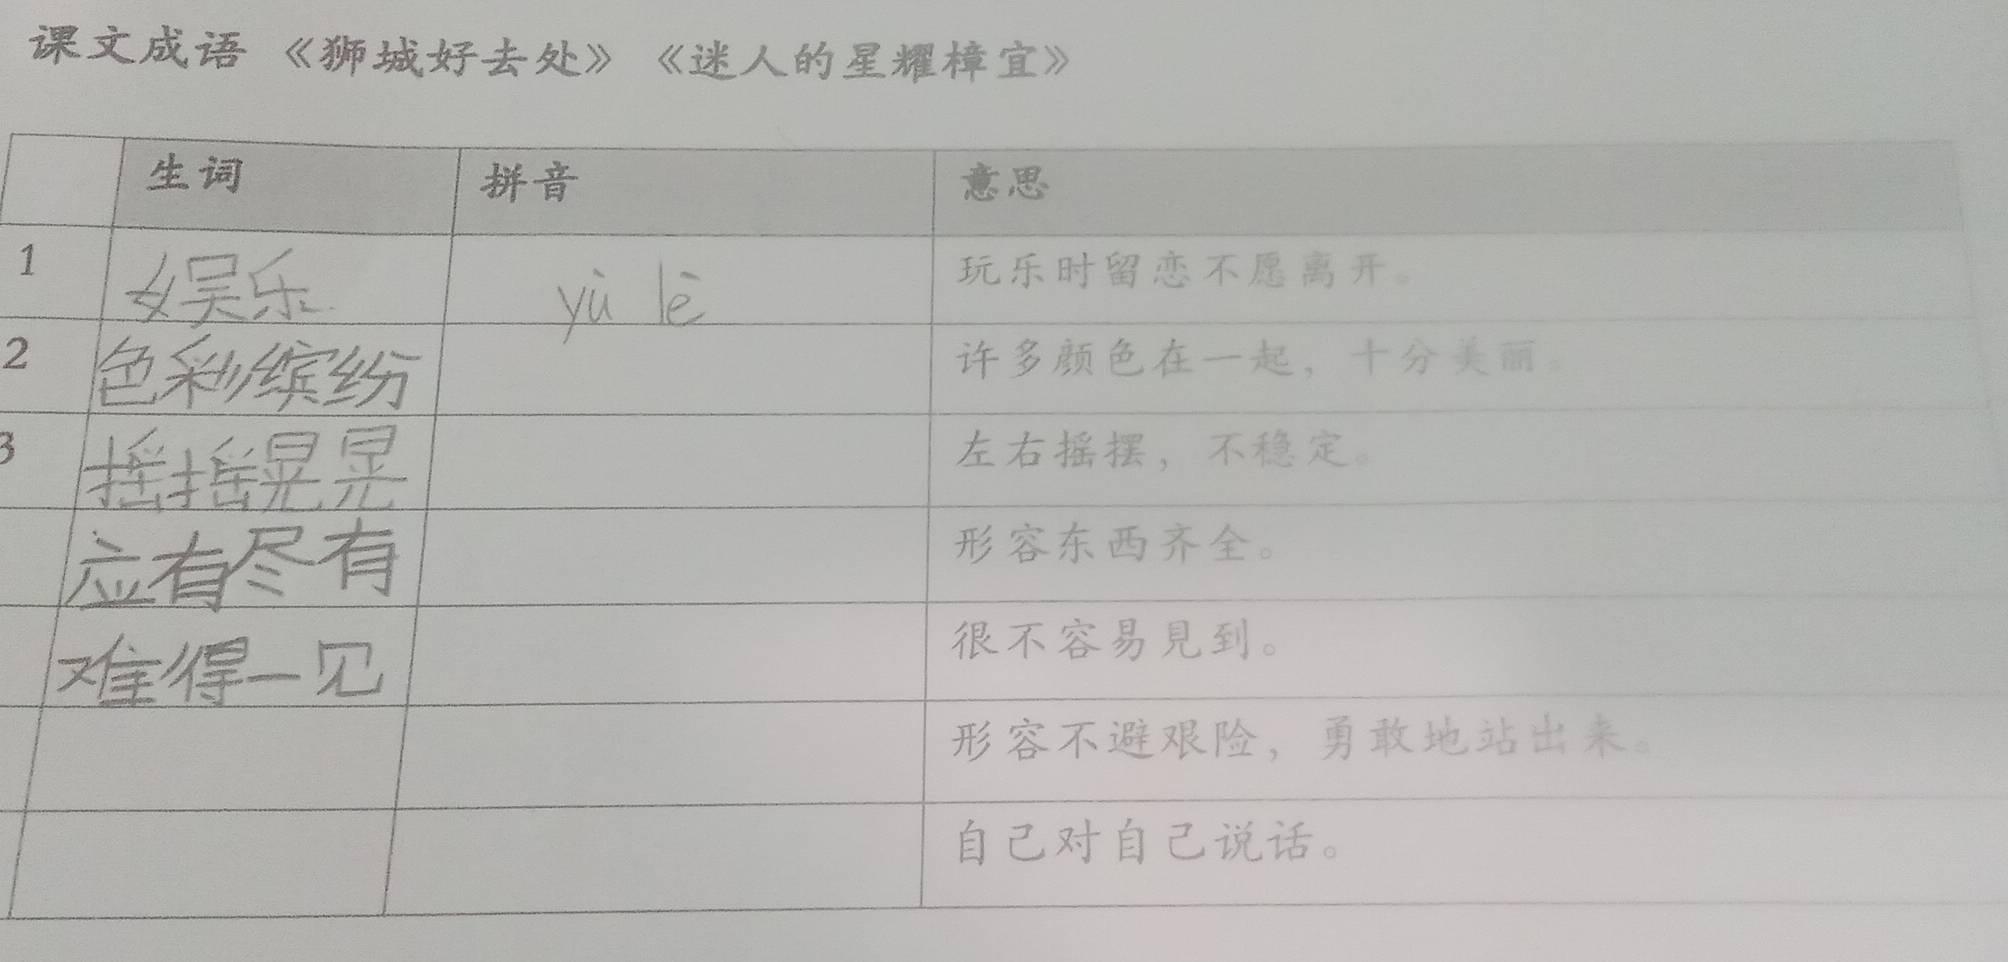 课文成语 《狮城好去处》《迷人的星耀樟宜》
生词 拼音 意思
1 娱乐 yù lè 玩乐时留恋不愿离开。
2 色彩缤纷 许多颜色在一起，十分美丽。
3 摇摇晃晃 左右摇摆，不稳定。
应有尽有 形容东西齐全。
难得一见 很不容易見到。
形容不避艰险，勇敢地站出来。
自己对自己说话。